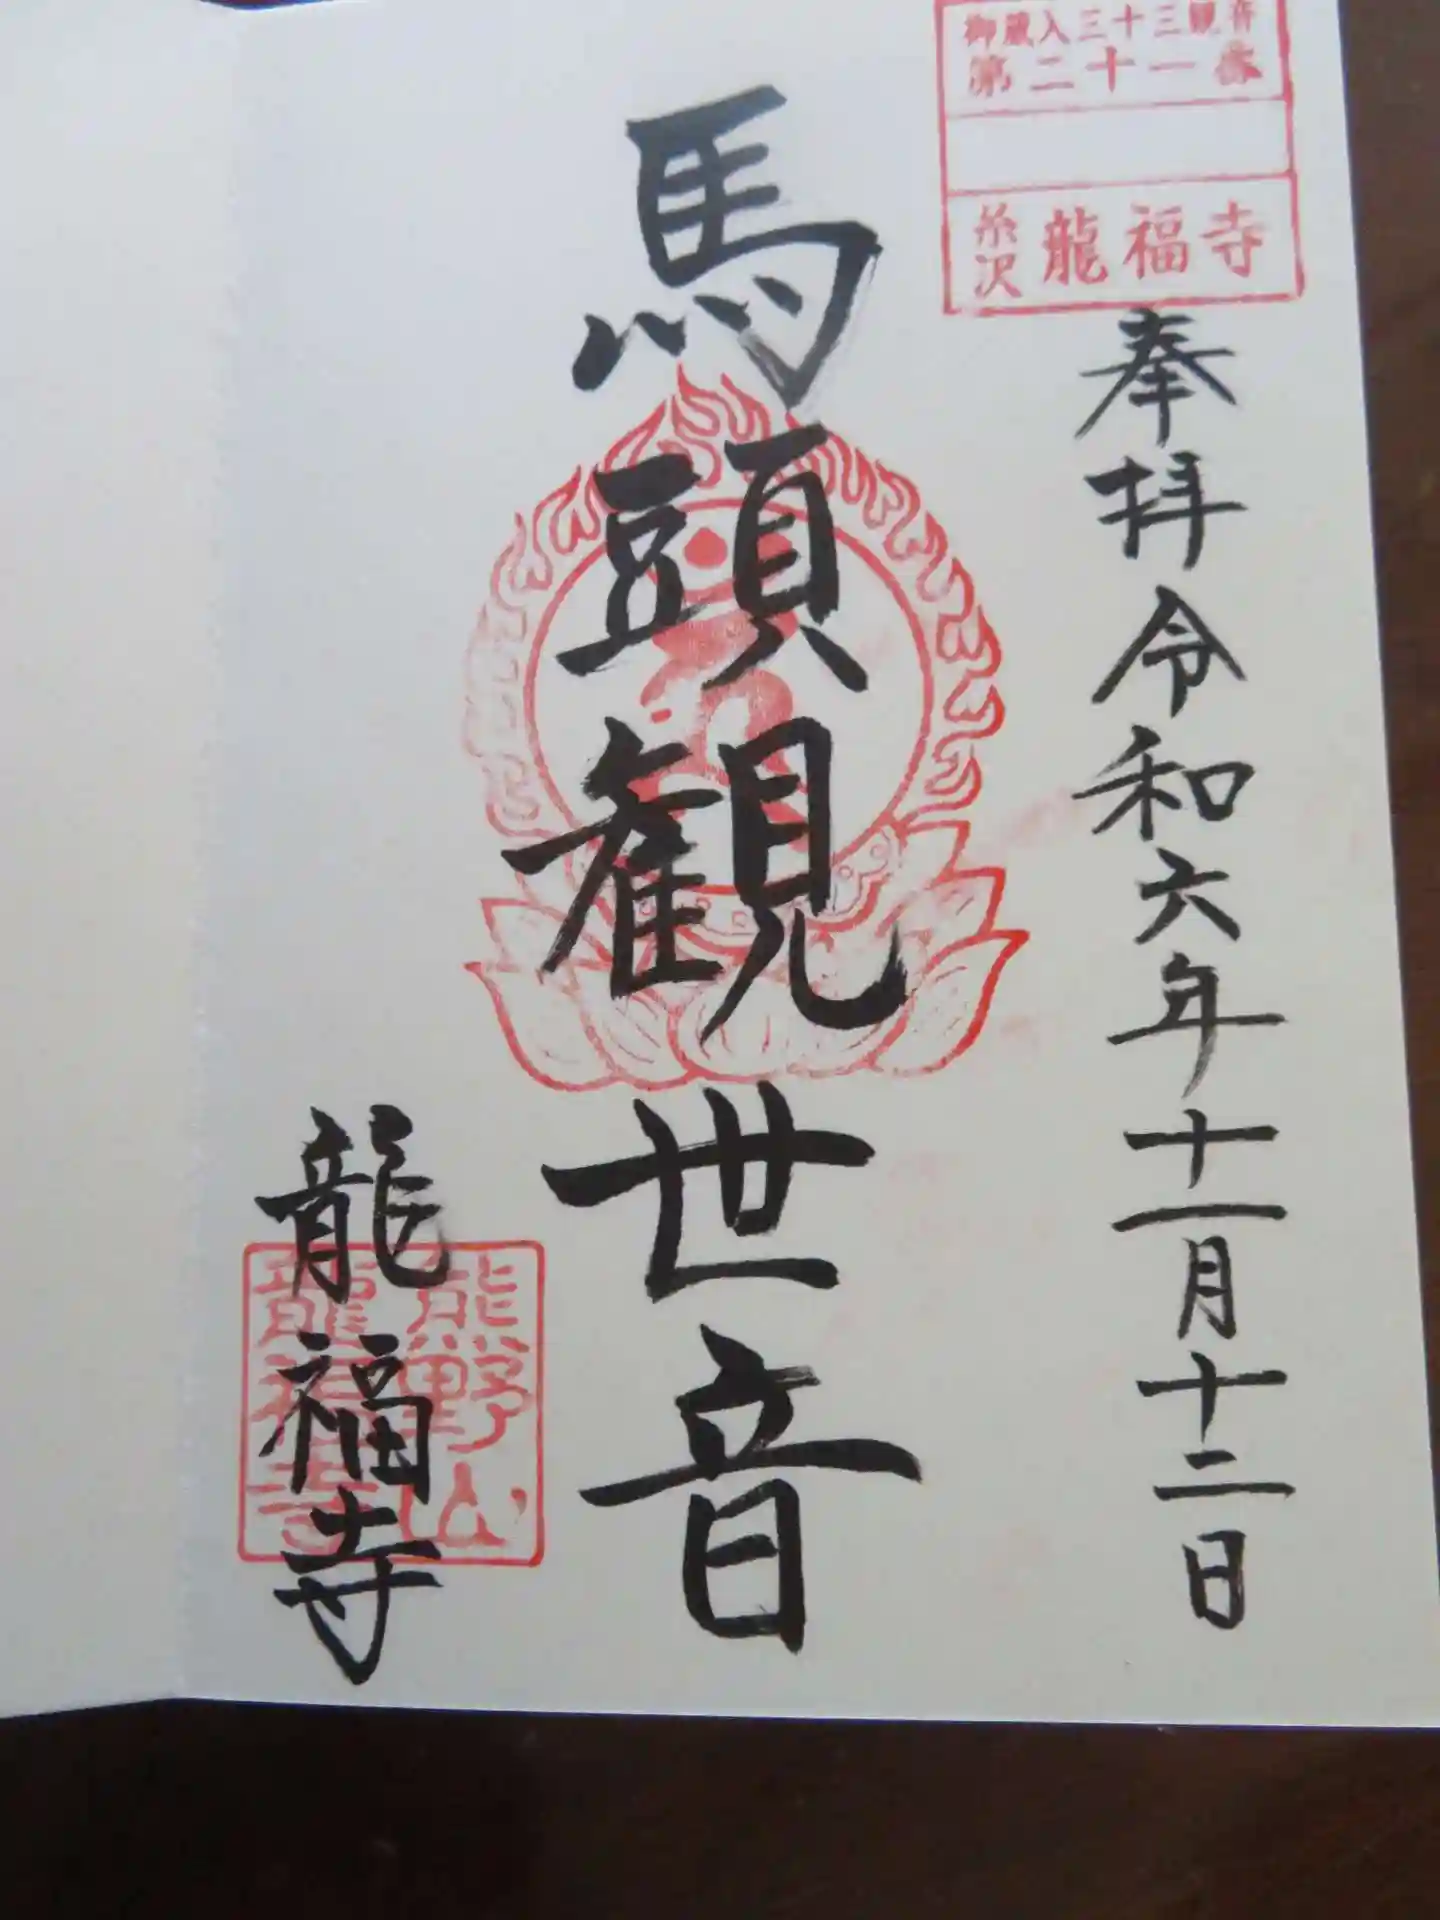 御蔵入三十三観音
第二十一番
糸沢 龍福寺
奉拝 令和六年十一月十二日
馬頭観世音
龍福寺
熊野山
龍福寺